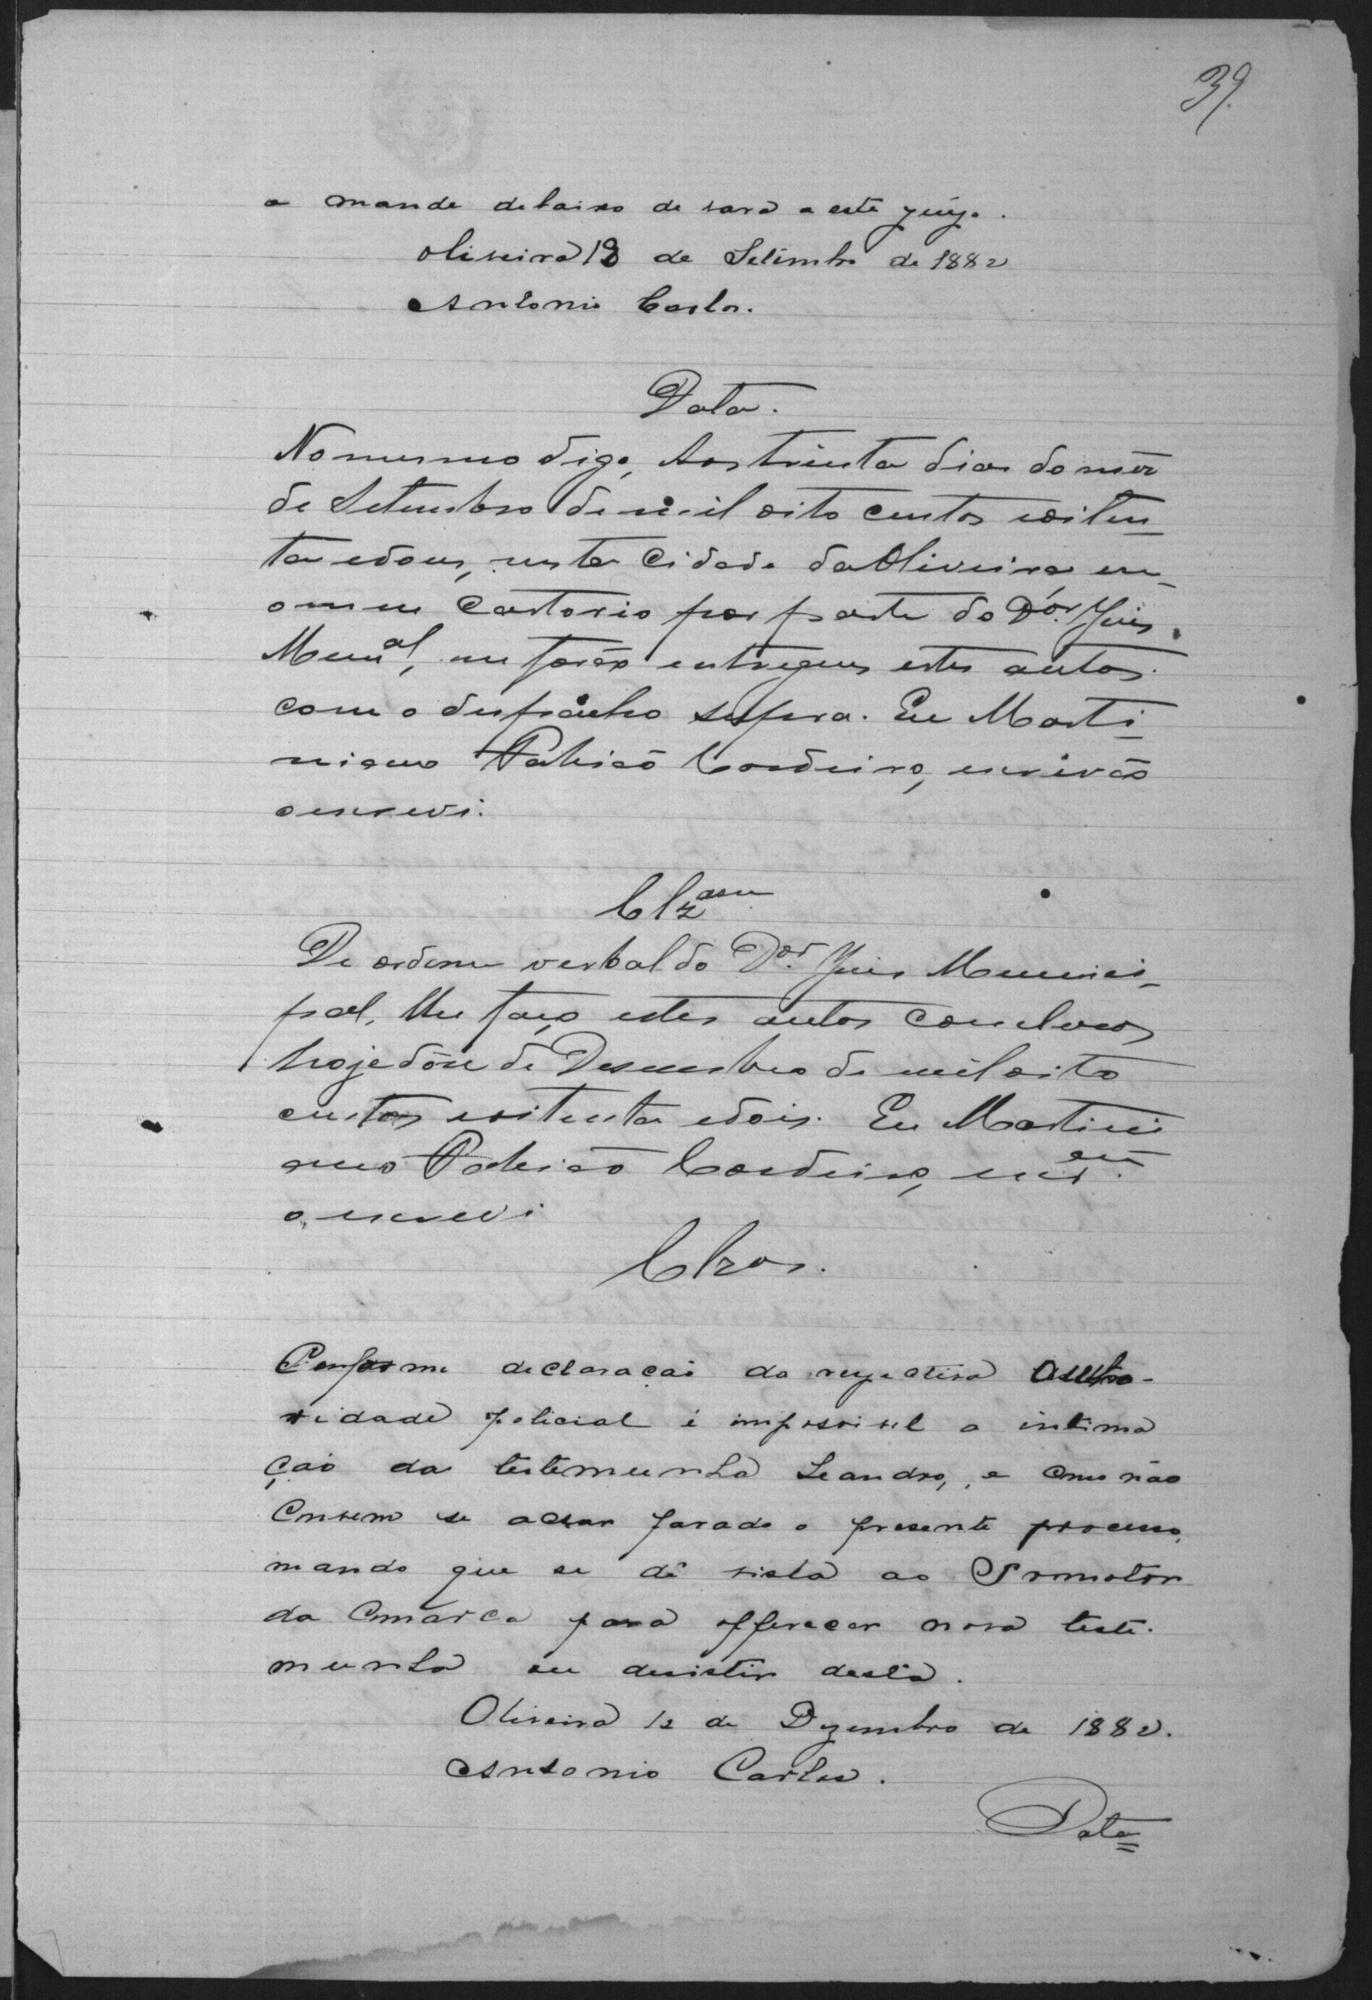 39.
a mande debaixo de vara a este juizo.
Oliveira 18 de Setimbro de 1882
Antonio Carlos.
Data.
No mesmo digo, Aos trinta dias do mês
de Setembro de mil oito centos e oiten_
ta e dous, nesta Cidade da Oliveira, em_
o meu Cartorio por parte do Dor. Juis
Munal, me forão entregues estes autos
com o despacho supra. Eu Marti_
niano Patricio Cordeiro, escrivão
o escrevi.
Clzam
De ordem verbal do Dor. Juis Munici_
pal, lhe faço estes autos conclusos
hoje dôse de Desembro de mil oito
centos e oitenta e dois. Eu Martini
ano Patricio Cordeiro, escram.
o, escrevi
Clzos.
Conforme declaração da respectiva Autho-
ridade policial é impossivel a intima
ção da testemunha Leandro, e como não
convem se achar parado o presente processo,
mando que se dê vista ao Promotor
da Comarca para offerecer nova teste-
munha ou desistir desta.
Oliveira 12 de Dezembro de 1882.
Antonio Carlos.
Data